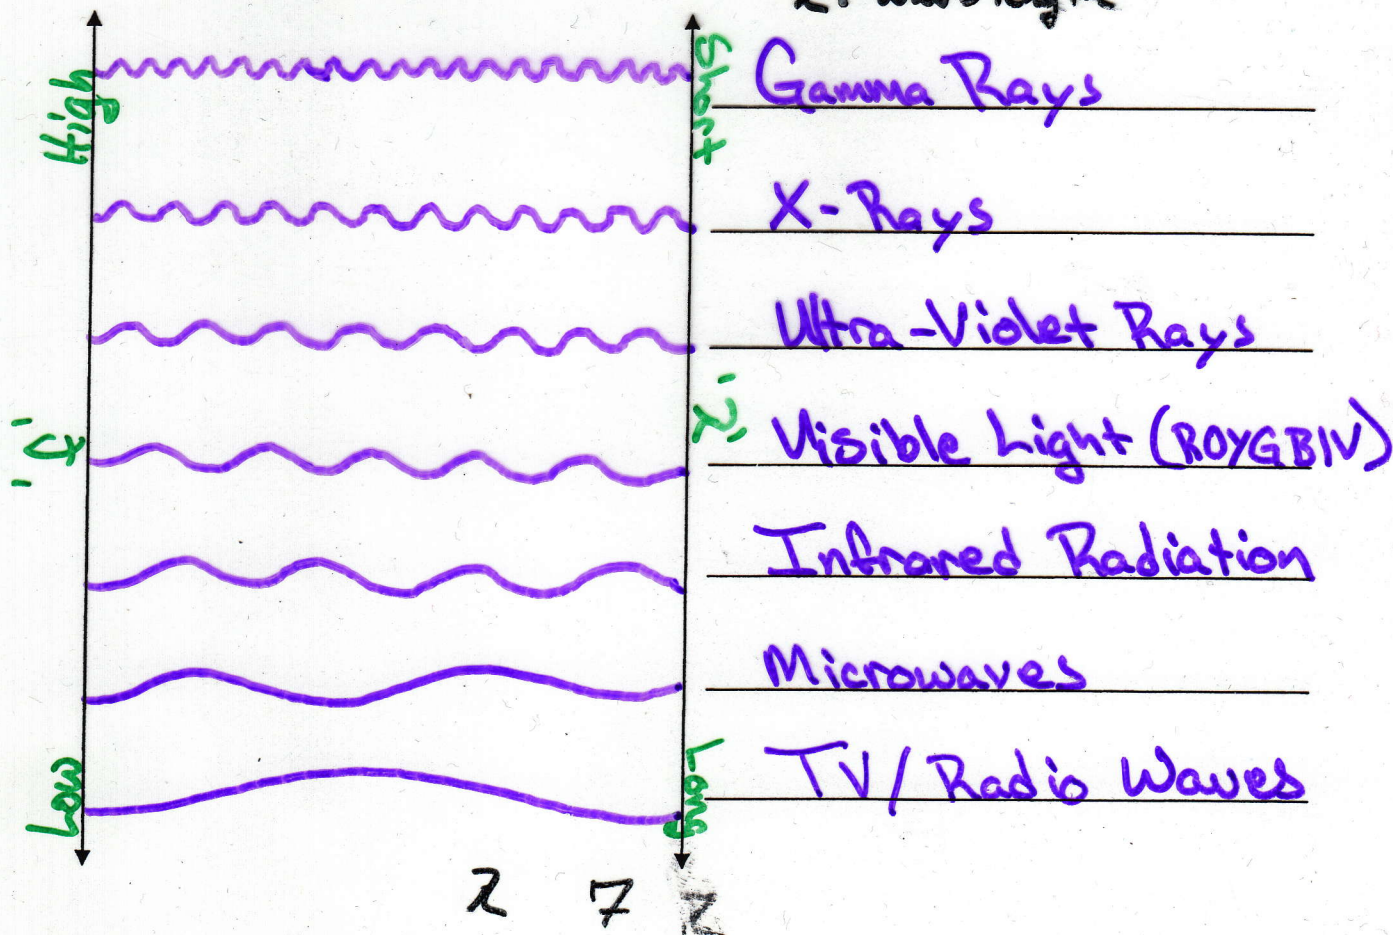 High
Short
Gamma Rays
X-Rays
Ultra-Violet Rays
'f'
'λ'
Visible Light (ROYGBIV)
Infrared Radiation
Microwaves
Low
Long
TV/Radio Waves
λ 7